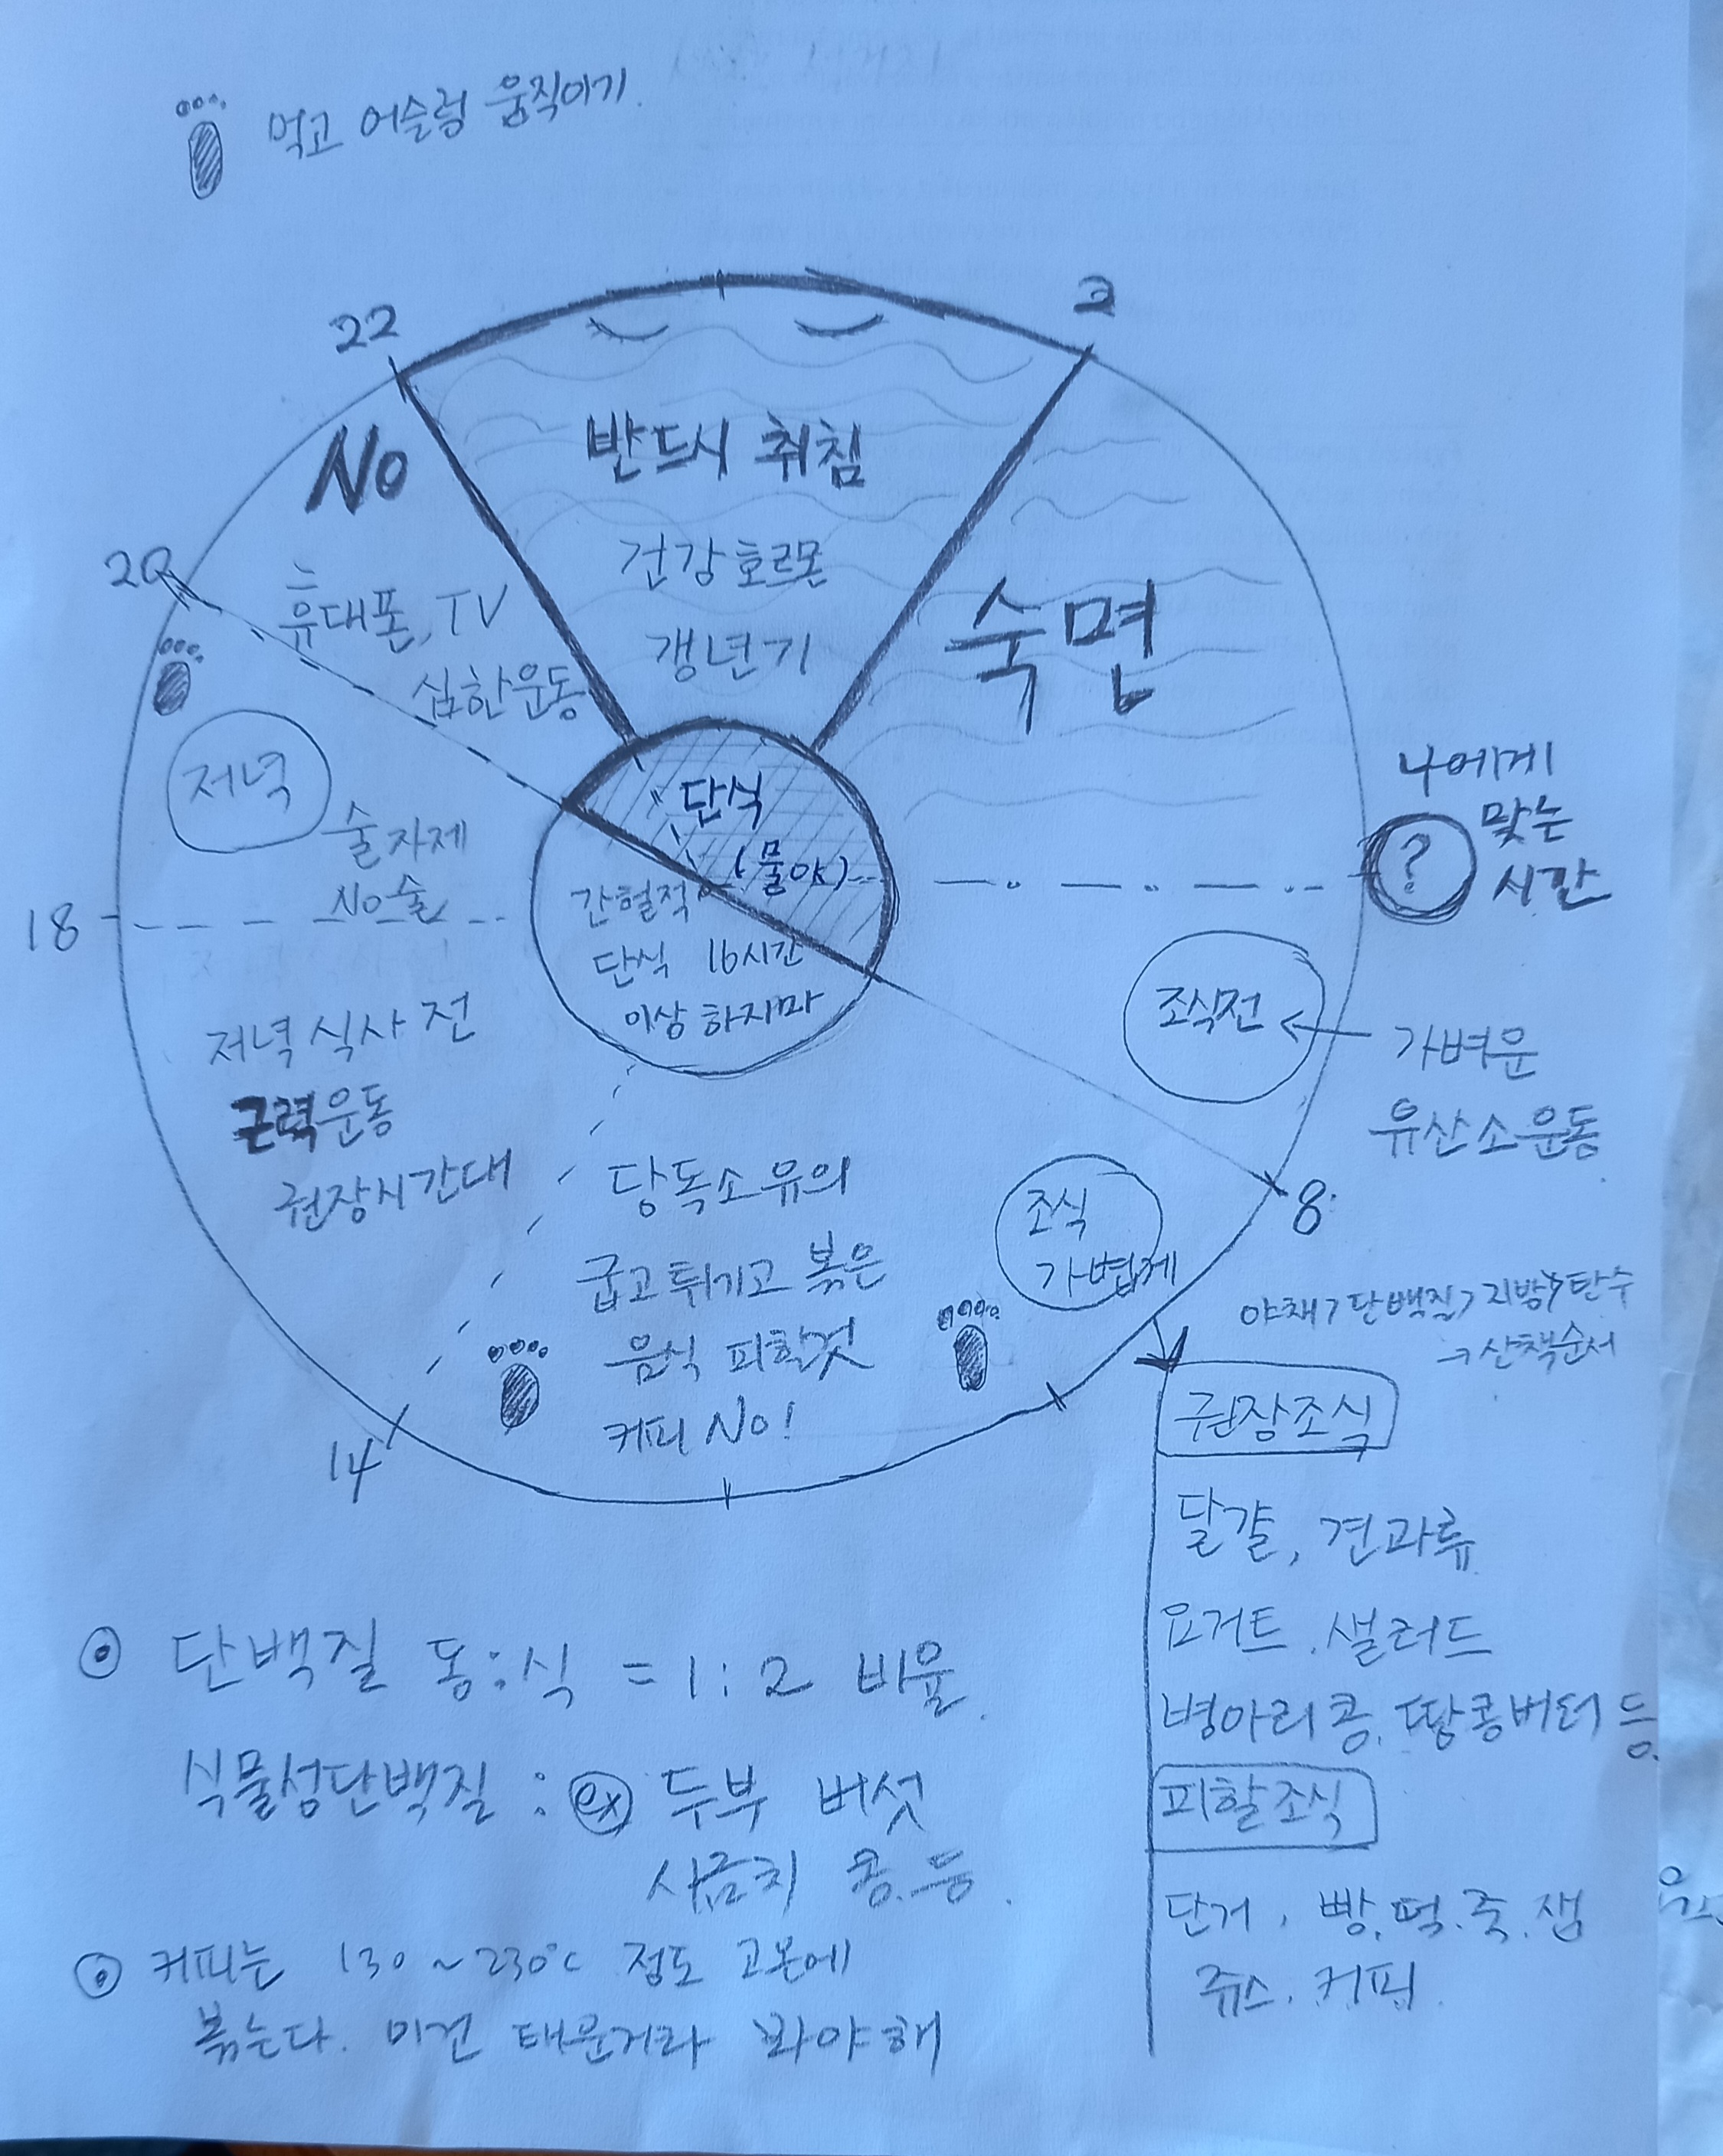 먹고 어슬렁 움직이기.
22
2
No
반드시 취침
건강호르몬
갱년기
20
휴대폰, TV
심한운동
숙면
저녁
술자제
No 술
18
단식
(물OK)
간헐적
단식 16시간
이상 하지마
나에게
맞는
?
시간
조식전
가벼운
유산소운동
8
저녁 식사 전
근력운동
권장시간대
당독소유의
굽고 튀기고 볶은
음식 피할것
커피 No!
14
조식
가볍게
야채 > 단백질 > 지방 > 탄수
→ 산책순서
권장조식
달걀, 견과류
요거트, 샐러드
병아리콩, 땅콩버터 등.
피할조식
단거, 빵, 떡, 죽, 잼
쥬스, 커피
단백질 동:식 = 1:2 비율.
식물성단백질 : ex 두부 버섯
시금치 콩 등.
커피는 130~230°C 정도 고온에
볶는다. 이건 태운거라 봐야해